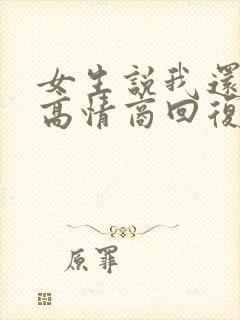 女生説我還
高情商回復
原罪